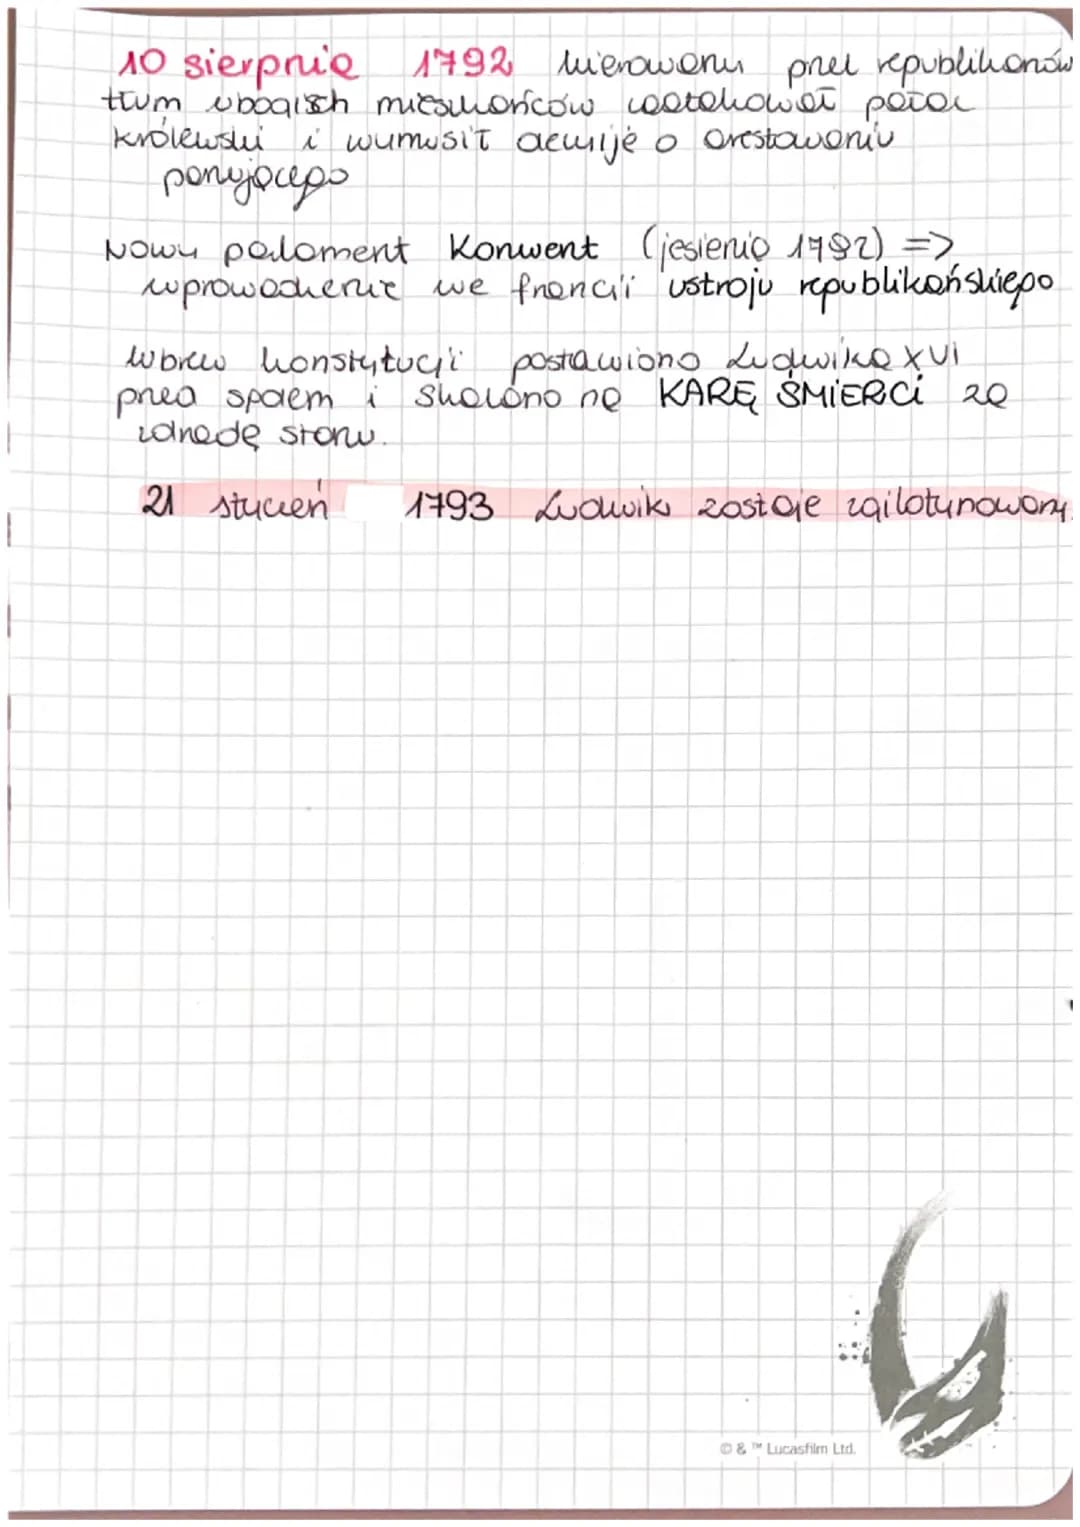 10 sierpnia 1792 kierowany przez republikanów
tłum ubogich mieszkańców zaatakował pałac
królewski i wymusił decyzję o arestowaniu
panującego
Nowy palament Konwent (jesienią 1792) =>
wprowadzenie we francji ustroju republikańskiego
wbrew konstytucji postawiono Ludwika XVI
przed sądem i skazano na KARĘ ŚMIERCi za
zdradę stanu.
21 styczeń 1793 Ludwik zostaje zgilotynowany.
© & ™ Lucasfilm Ltd.